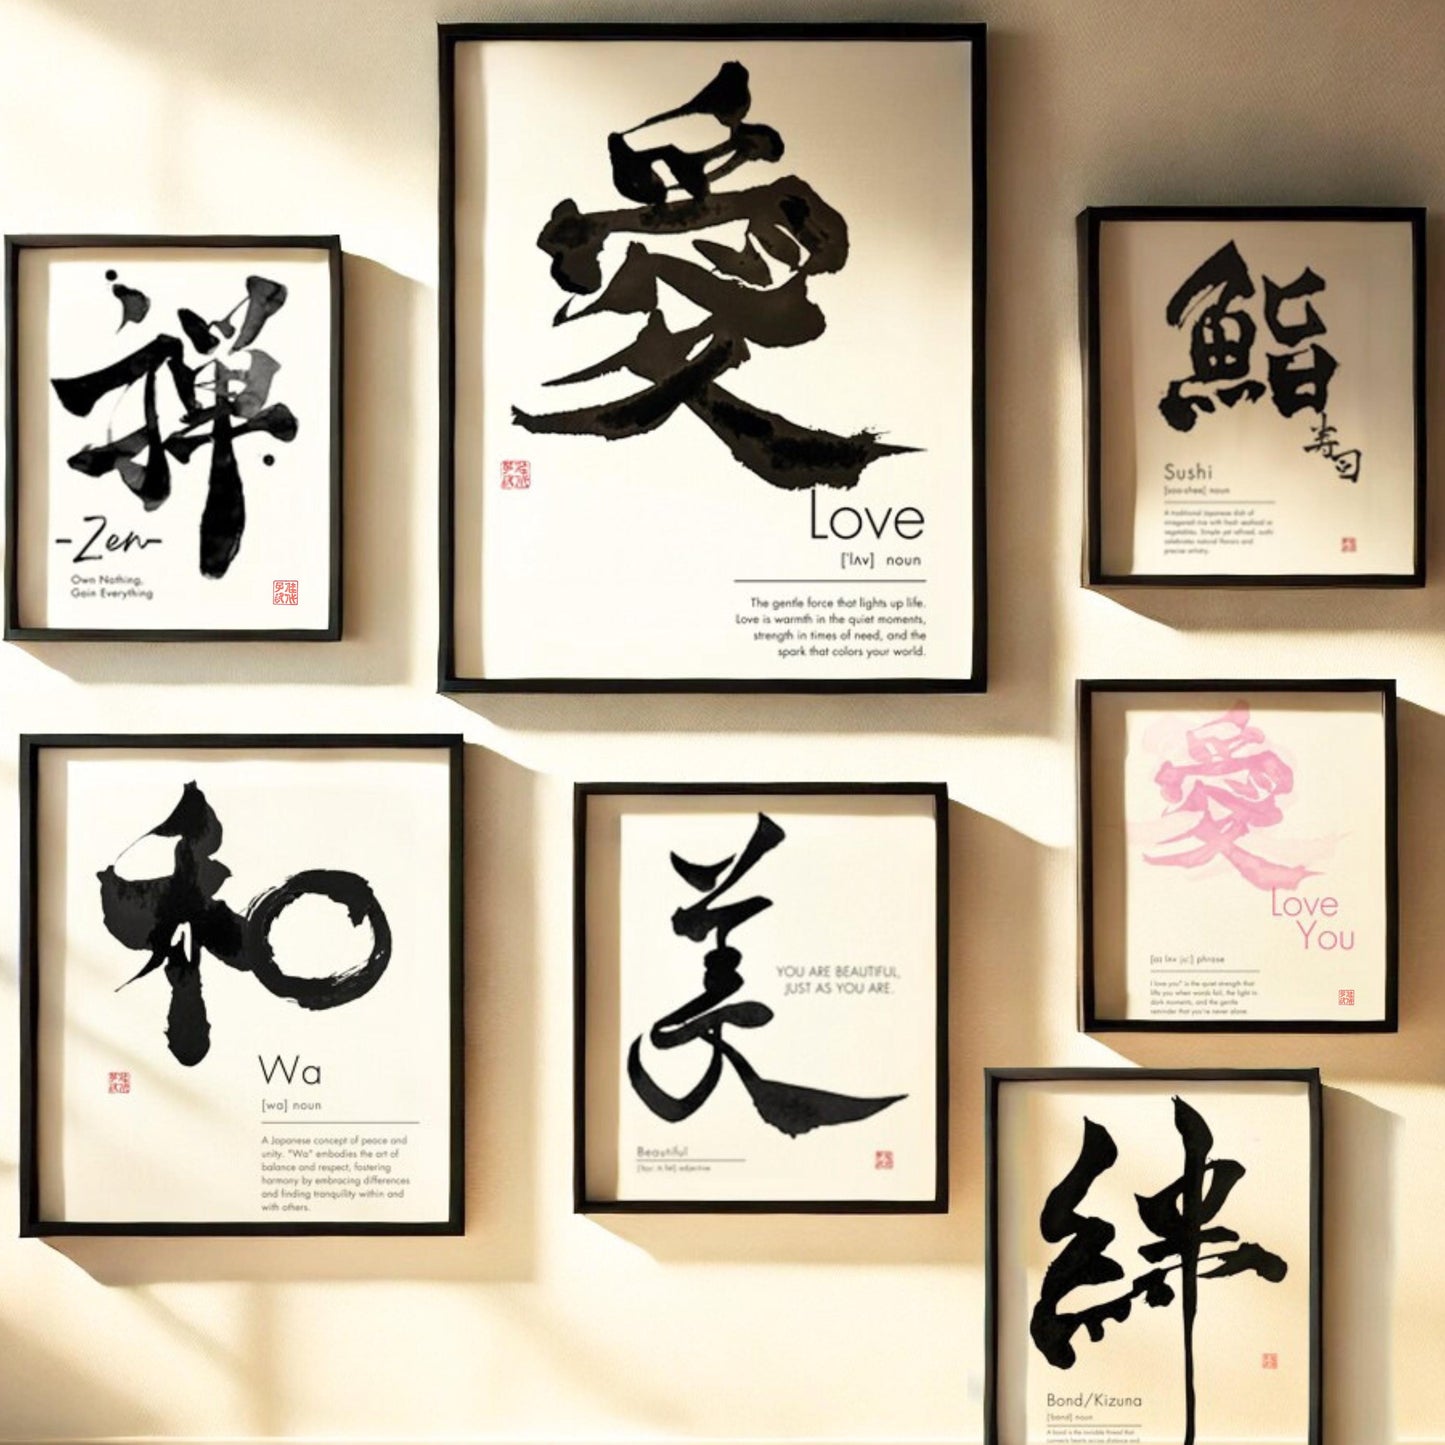 禅
-Zen-
Own Nothing,
Gain Everything
愛
Love
['lʌv] noun
The gentle force that lights up life.
Love is warmth in the quiet moments,
strength in times of need, and the
spark that colors your world.
鮨
寿司
Sushi
[soo-shee] noun
A traditional Japanese dish of
vinegared rice with fresh seafood or
vegetables. Simple yet refined, sushi
celebrates natural flavors and
precise artistry.
和
Wa
[wa] noun
A Japanese concept of peace and
unity. "Wa" embodies the art of
balance and respect, fostering
harmony by embracing differences
and finding tranquility within and
with others.
美
YOU ARE BEAUTIFUL,
JUST AS YOU ARE.
Beautiful
adjective
愛
Love
You
phrase
I love you" is the quiet strength that
lifts you when words fail, the light in
dark moments, and the gentle
reminder that you're never alone.
絆
Bond/Kizuna
[bond] noun
A bond is the invisible thread that
connects hearts across distance and